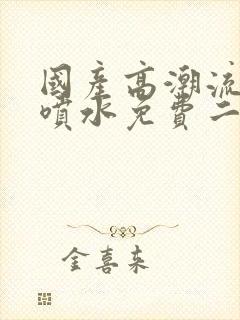 國產高潮流
噴水免費二
金喜来